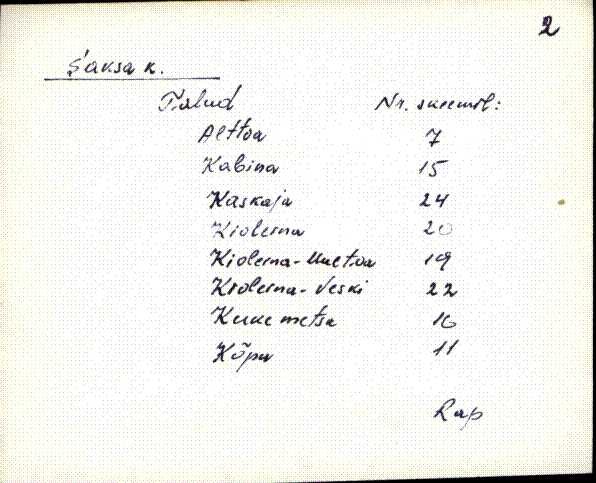 2
Saksa k.
Talud Nr. skeemil:
Alttoa 7
Kabina 15
Kaskaja 24
Kiolema 20
Kiolema-Uuetoa 19
Kiolema-Veski 22
Kuue metsa 16
Kõpu 11
Rap